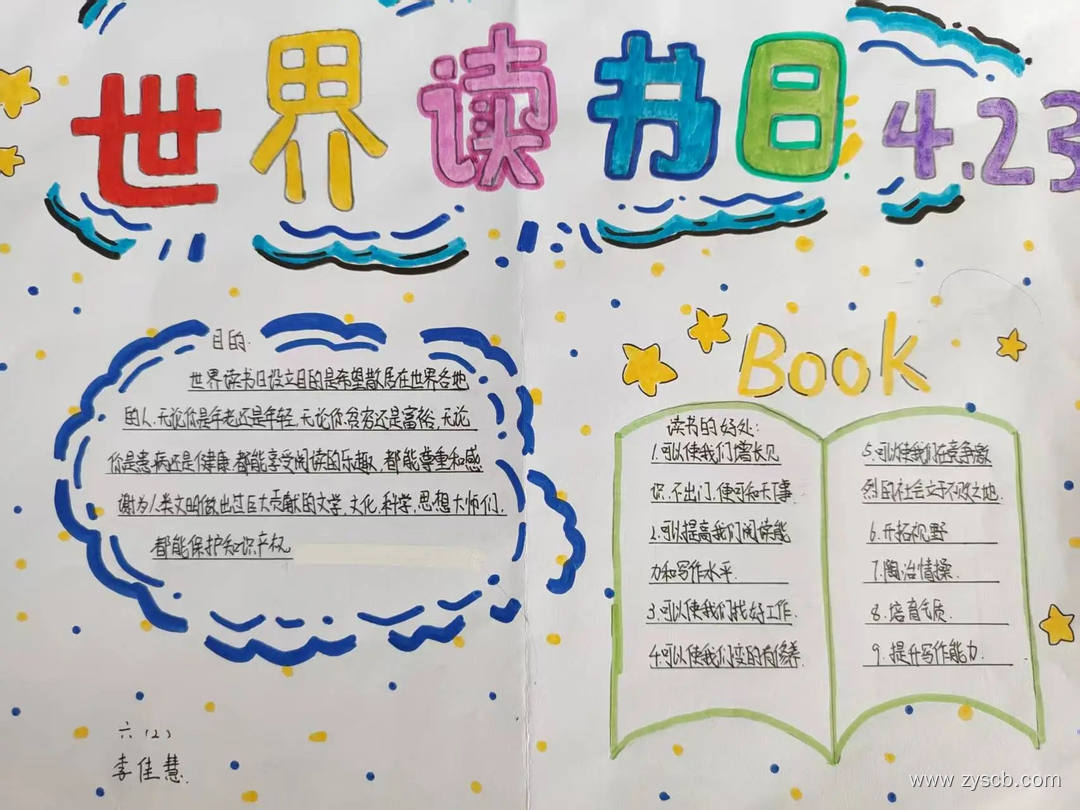 世界读书日 4.23
目的:
世界读书日设立目的是希望散居在世界各地
的人,无论你是年老还是年轻,无论你贫穷还是富裕,无论
你是患病还是健康,都能享受阅读的乐趣,都能尊重和感
谢为人类文明做出过巨大贡献的文学,文化,科学,思想大师们,
都能保护知识产权
Book
读书的好处:
1.可以使我们增长见
识,不出门,便可知天下事.
2.可以提高我们阅读能
力和写作水平.
3.可以使我们找好工作.
4.可以使我们变的有修养.
5.可以使我们在竞争激
烈的社会立于不败之地.
6.开拓视野
7.陶冶情操.
8.培育气质.
9.提升写作能力.
六(2)
李佳慧.
www.zyscb.com